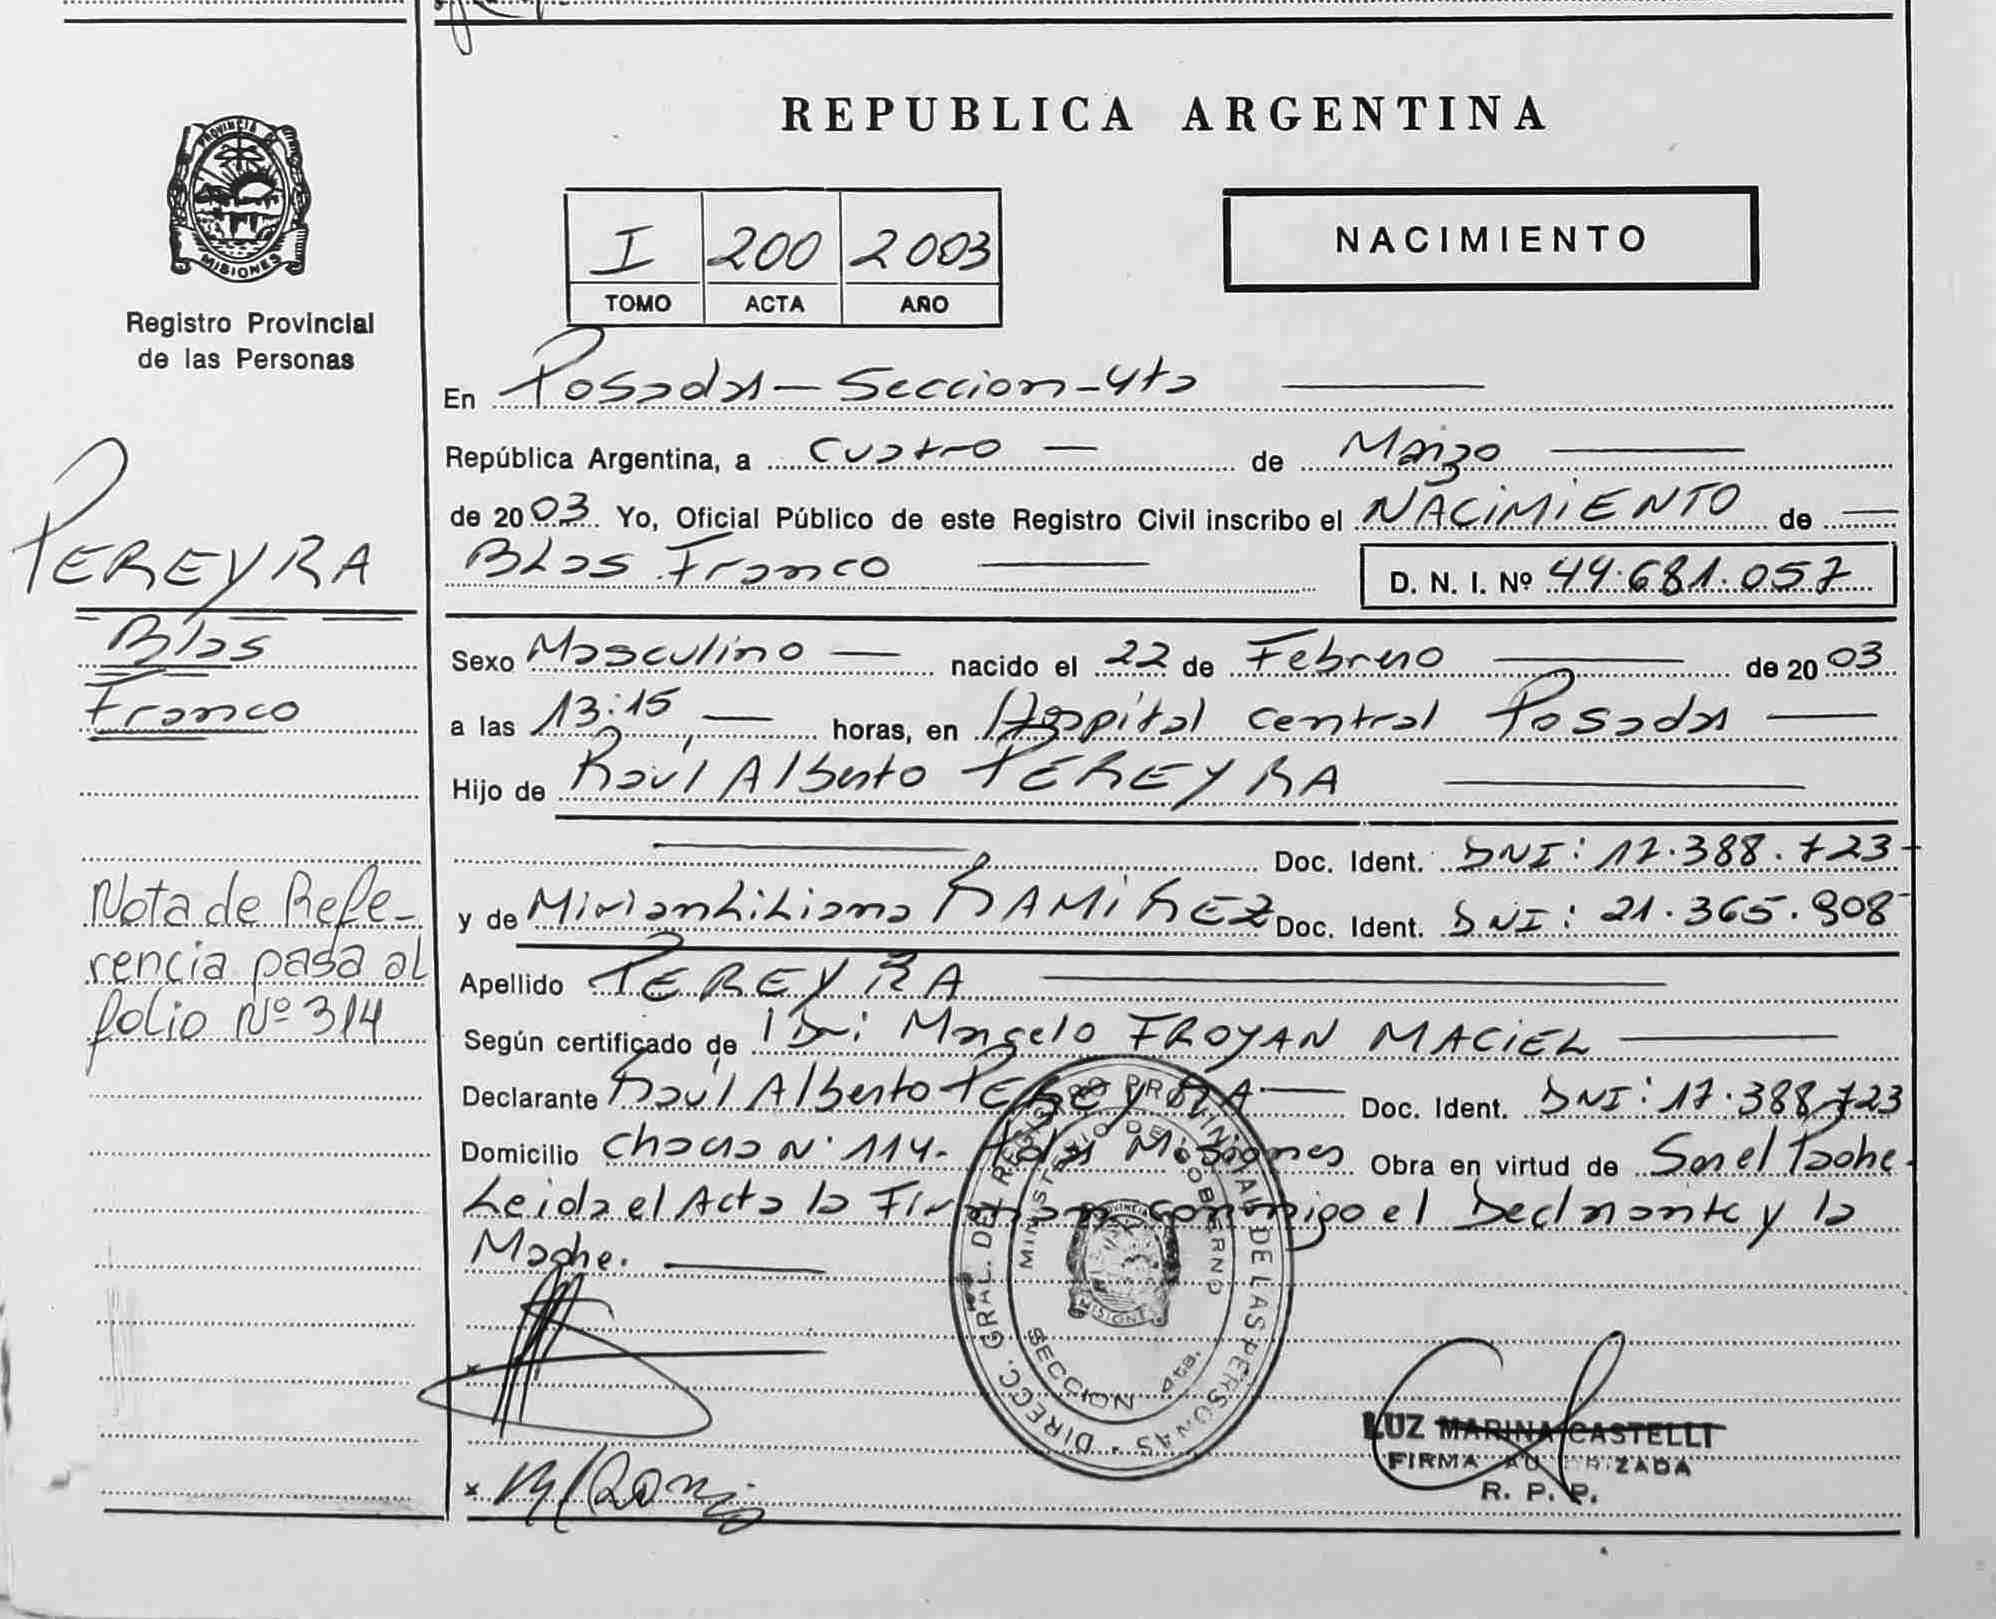 REPUBLICA ARGENTINA
PROVINCIA DE
MISIONES
Registro Provincial
de las Personas
I 200 2003
TOMO ACTA AÑO
NACIMIENTO
En Posadas - Seccion - 4ta
República Argentina, a Cuatro de Marzo
de 2003 Yo, Oficial Público de este Registro Civil inscribo el NACIMIENTO de
Blas Franco D. N. I. Nº 44.681.057
PEREYRA
Blas
Franco
Sexo Masculino nacido el 22 de Febrero de 2003
a las 13:15 horas, en Hospital Central Posadas
Hijo de Raúl Alberto PEREYRA
Doc. Ident. DNI: 17.388.723
y de Miriam Liliana RAMIREZ Doc. Ident. DNI: 21.365.908
Nota de Refe-
rencia pasa al
folio Nº 314
Apellido PEREYRA
Según certificado de Dr: Marcelo FROYAN MACIEL
Declarante Raúl Alberto PEREYRA Doc. Ident. DNI: 17.388.723
Domicilio Chaco N° 114 - Misiones Obra en virtud de Ser el Padre
Leida el Acta la Firman conmigo el Declarante y la
Madre.
DIRECC. GRAL. DEL REGISTRO PROVINCIAL DE LAS PERSONAS
MINISTERIO DE GOBIERNO
SECCION 4ta.
LUZ MARINA CASTELLI
FIRMA AUTORIZADA
R. P. P.